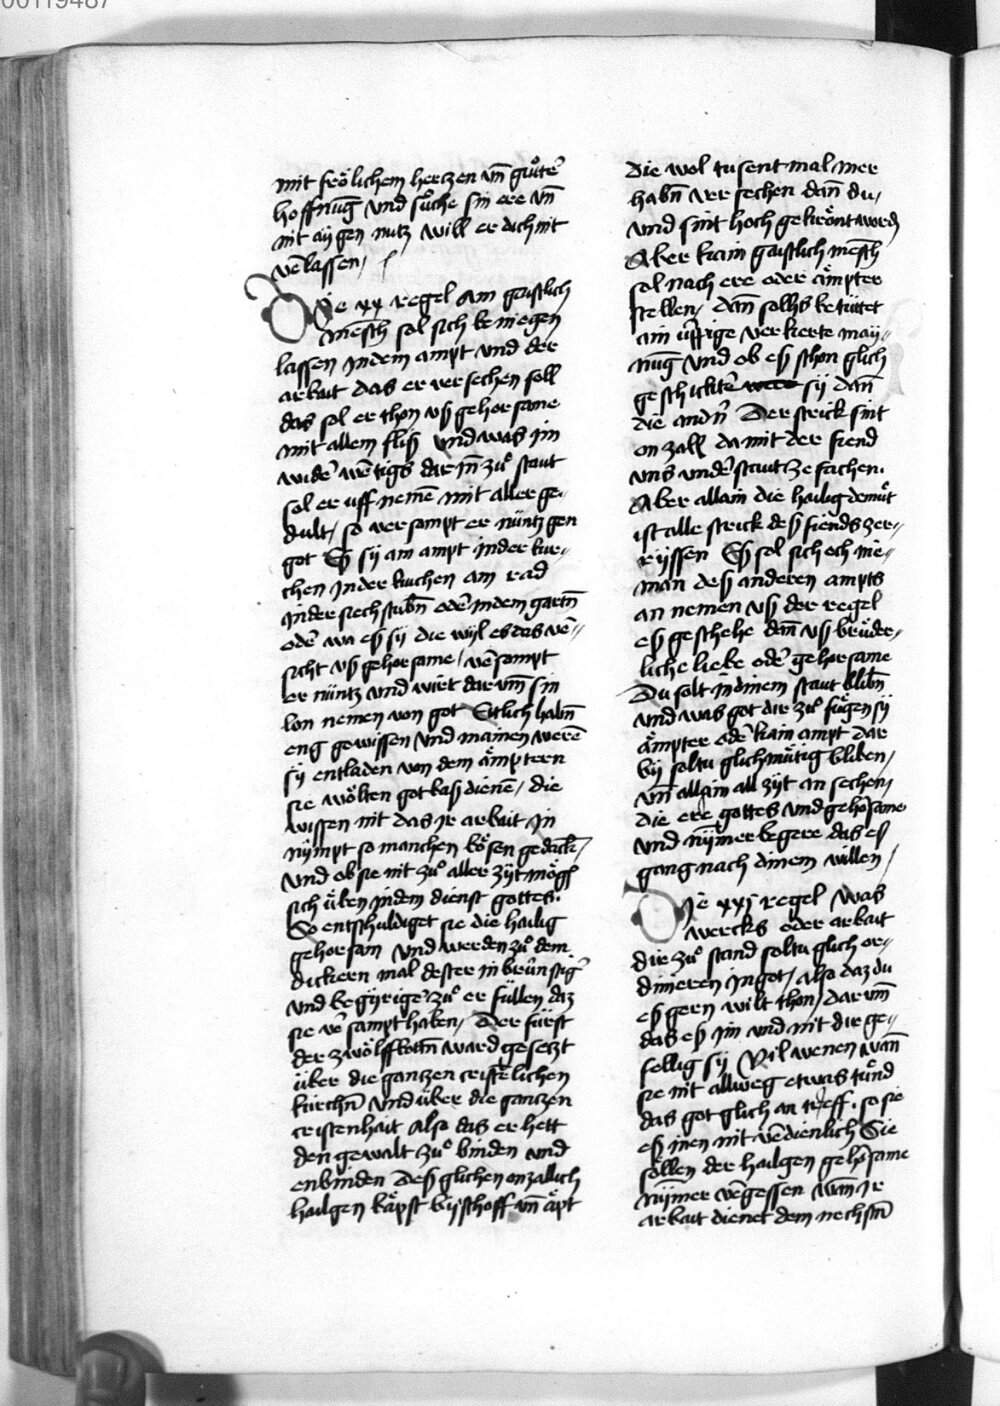 00119487
mit frölichem hertzen vn̄ gůter
hoffnūg vnd sůche sin ere vn̄
nit aÿgen nutz will er dich nit
v̄lassen /
Die xx regel Am gaistlich
mēsch sol sich beniegen
lassen jn dem ampt vnd der
arbait das er versechen soll
das sol er thon vß gehorsame
mit allem flis vnd was jm
wider wertigs dar jn̄ zů staut
sol er uff nemē mit aller ge-
dult / so versampt er nüntz gen
got Eß sÿ am ampt jn der kur-
chen jn der kuchen am rad
jn der siechstubn̄ oder jn dem gartn̄
oder wa eß sÿ die wÿl es das v̄-
sicht vß gehorsame / v̄sampt
er nüntz vnd wirt dar vm̄ sin
lon nemen von got Ettlich habn̄
eng gewissen vnd mainen werē
sÿ entladen von dem ämptern
sie wölten got baß dienē / die
wissen nit das jr arbait jn
nÿmpt so manchen bösen gedāck /
vnd ob sie nit zů aller zÿt mögē
sich üben jn dem dienst gottes.
So entschuldiget sie die hailig
gehorsam vnd werden zů dem
dickern mal dester inbrünstiger
vnd begÿriger zů erfüllen daz
sie v̄sampt haben / Der fürst
der zwölffbottn̄ ward gesetzt
über die gantzen cristelichen
kürchn̄ vnd über die gantzen
cristenhait Also das er hett
den gewalt zů binden vnd
enbinden Deß glichen onzallich
hailgen bäpst bÿschoff vn̄ äpt
die wol tusent mal mer
habn̄ versechen dan̄ du /
vnd sint hoch gekrönt worden
Aber kain gaistlich mēsch
sol nach ere oder ämpter
stellen / dan̄ sollhs betüttet
ain üppige verkerte maÿ-
nūg vnd ob eß schon glich
geschickter sÿ dan̄
die andn̄ Der strick sint
on zall da mit der fiend
vns vnderstaut ze fachen.
Aber allain die hailig demüt
ist alle strick deß fiends zer-
rÿssen Eß sol sich och nie-
man deß anderen ampts
an nemen vß der regel
eß geschehe dan̄ vß brüder-
liche liebe oder gehorsame
Du solt in dinem staut blibn̄
vnd was got dir zů fügen sÿ
ämpter oder kain ampt Dar
bÿ soltu glichmütig bliben /
vn̄ allain all zÿt an sechen /
die ere gottes vnd gehorsame
vnd nÿmer begere das eß
gang nach dinem willen /
Die xxj regel Was
wercks oder arbait
dir zů stand soltu glich or-
dinieren jn got / also daz du
eß gern wilt thon / dar vm̄
das eß jm vnd nit dir ge-
fellig sÿ Vil wenen wan̄
sie nit allweg etwas tünd
das got glich an treff. so sie
eß inen nit v̄dienlich Sie
söllen der hailgen gehorsame
nÿmer v̄gessen wan̄ jr
arbait dienet dem nechstn̄